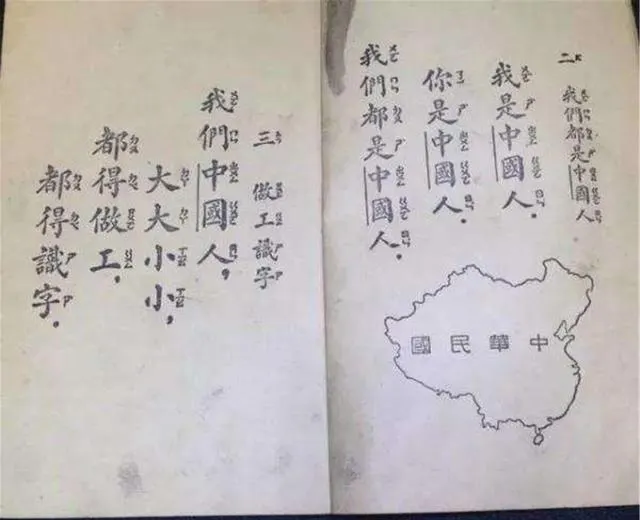 二 我們都是中國人
我是中國人．
你是中國人．
我們都是中國人．
中華民國
三 做工識字
我們中國人，
大大小小，
都得做工．
都得識字．